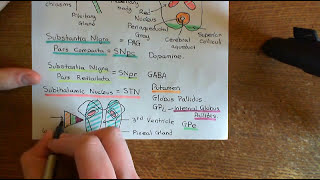 chiasma
Pituitary
Gland
Mamillary
body
Red
Nucleus
Periaqueductal
Gray
= PAG
Cerebral
aqueduct
Superior
Colliculi
Substantia Nigra
Pars Compacta = SNpc
Dopamine.
Substantia Nigra
Pars Reticulata = SNpr
GABA
Subthalamic Nucleus = STN
Putamen
Globus Pallidus
GPi - internal Globus
Pallidus
GPe
3rd Ventricle
Pineal Gland